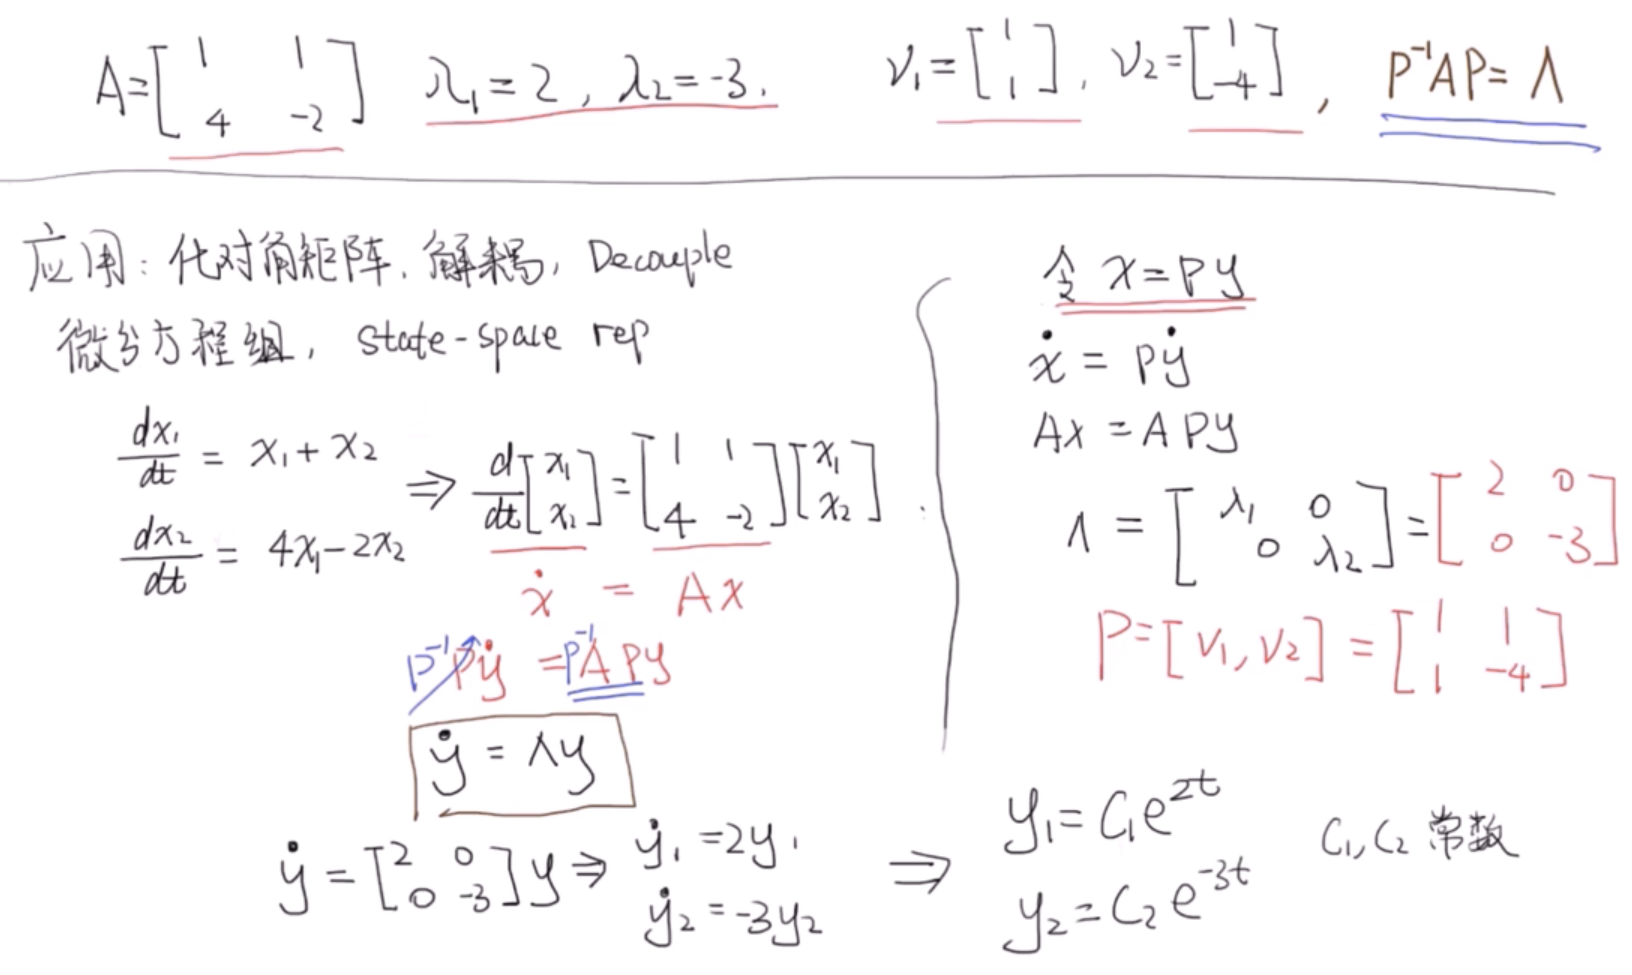 A = [1 1; 4 -2] λ₁ = 2, λ₂ = -3. ν₁ = [1; 1], ν₂ = [1; -4], P⁻¹AP = Λ
应用: 化对角矩阵. 解耦, Decouple
微分方程组, state-space rep
dx₁/dt = x₁ + x₂
dx₂/dt = 4x₁ - 2x₂
⇒ d/dt [x₁; x₂] = [1 1; 4 -2] [x₁; x₂].
ẋ = Ax
P⁻¹Pẏ = P⁻¹APy
ẏ = Λy
ẏ = [2 0; 0 -3] y ⇒ ẏ₁ = 2y₁
ẏ₂ = -3y₂
令 x = Py
ẋ = Pẏ
Ax = APy
Λ = [λ₁ 0; 0 λ₂] = [2 0; 0 -3]
P = [ν₁, ν₂] = [1 1; 1 -4]
⇒ y₁ = C₁e²ᵗ
y₂ = C₂e⁻³ᵗ
C₁, C₂ 常数